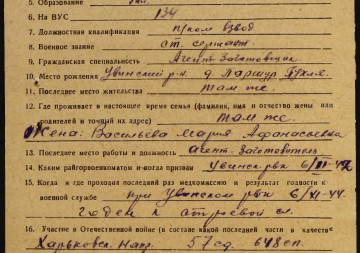 5. Образование
6. На ВУС 134
7. Должностная квалификация п/ком взвод
8. Военное звание ст. сержант
9. Гражданская специальность Агент Заготовщик
10. Место рождения Увинский р-н д.
11. Последнее место жительства там же.
12. Где проживает в настоящее время семья (фамилия, имя и отчество жены или
родителей и точный их адрес) там же.
Жена: Васильева Мария Афанасьевна
13. Последнее место работы и должность агент-заготовитель
14. Каким райгорвоенкоматом и когда призван Увинск рвк
15. Когда и где проходил последний раз медкомиссию и результат годности к
военной службе при Увинском рвк 6/XI-44.
годен к строевой сл.
16. Участие в Отечественной войне (в составе какой последней части и в качестве
Харьковск. Напр. 57 сд. 648 сп.